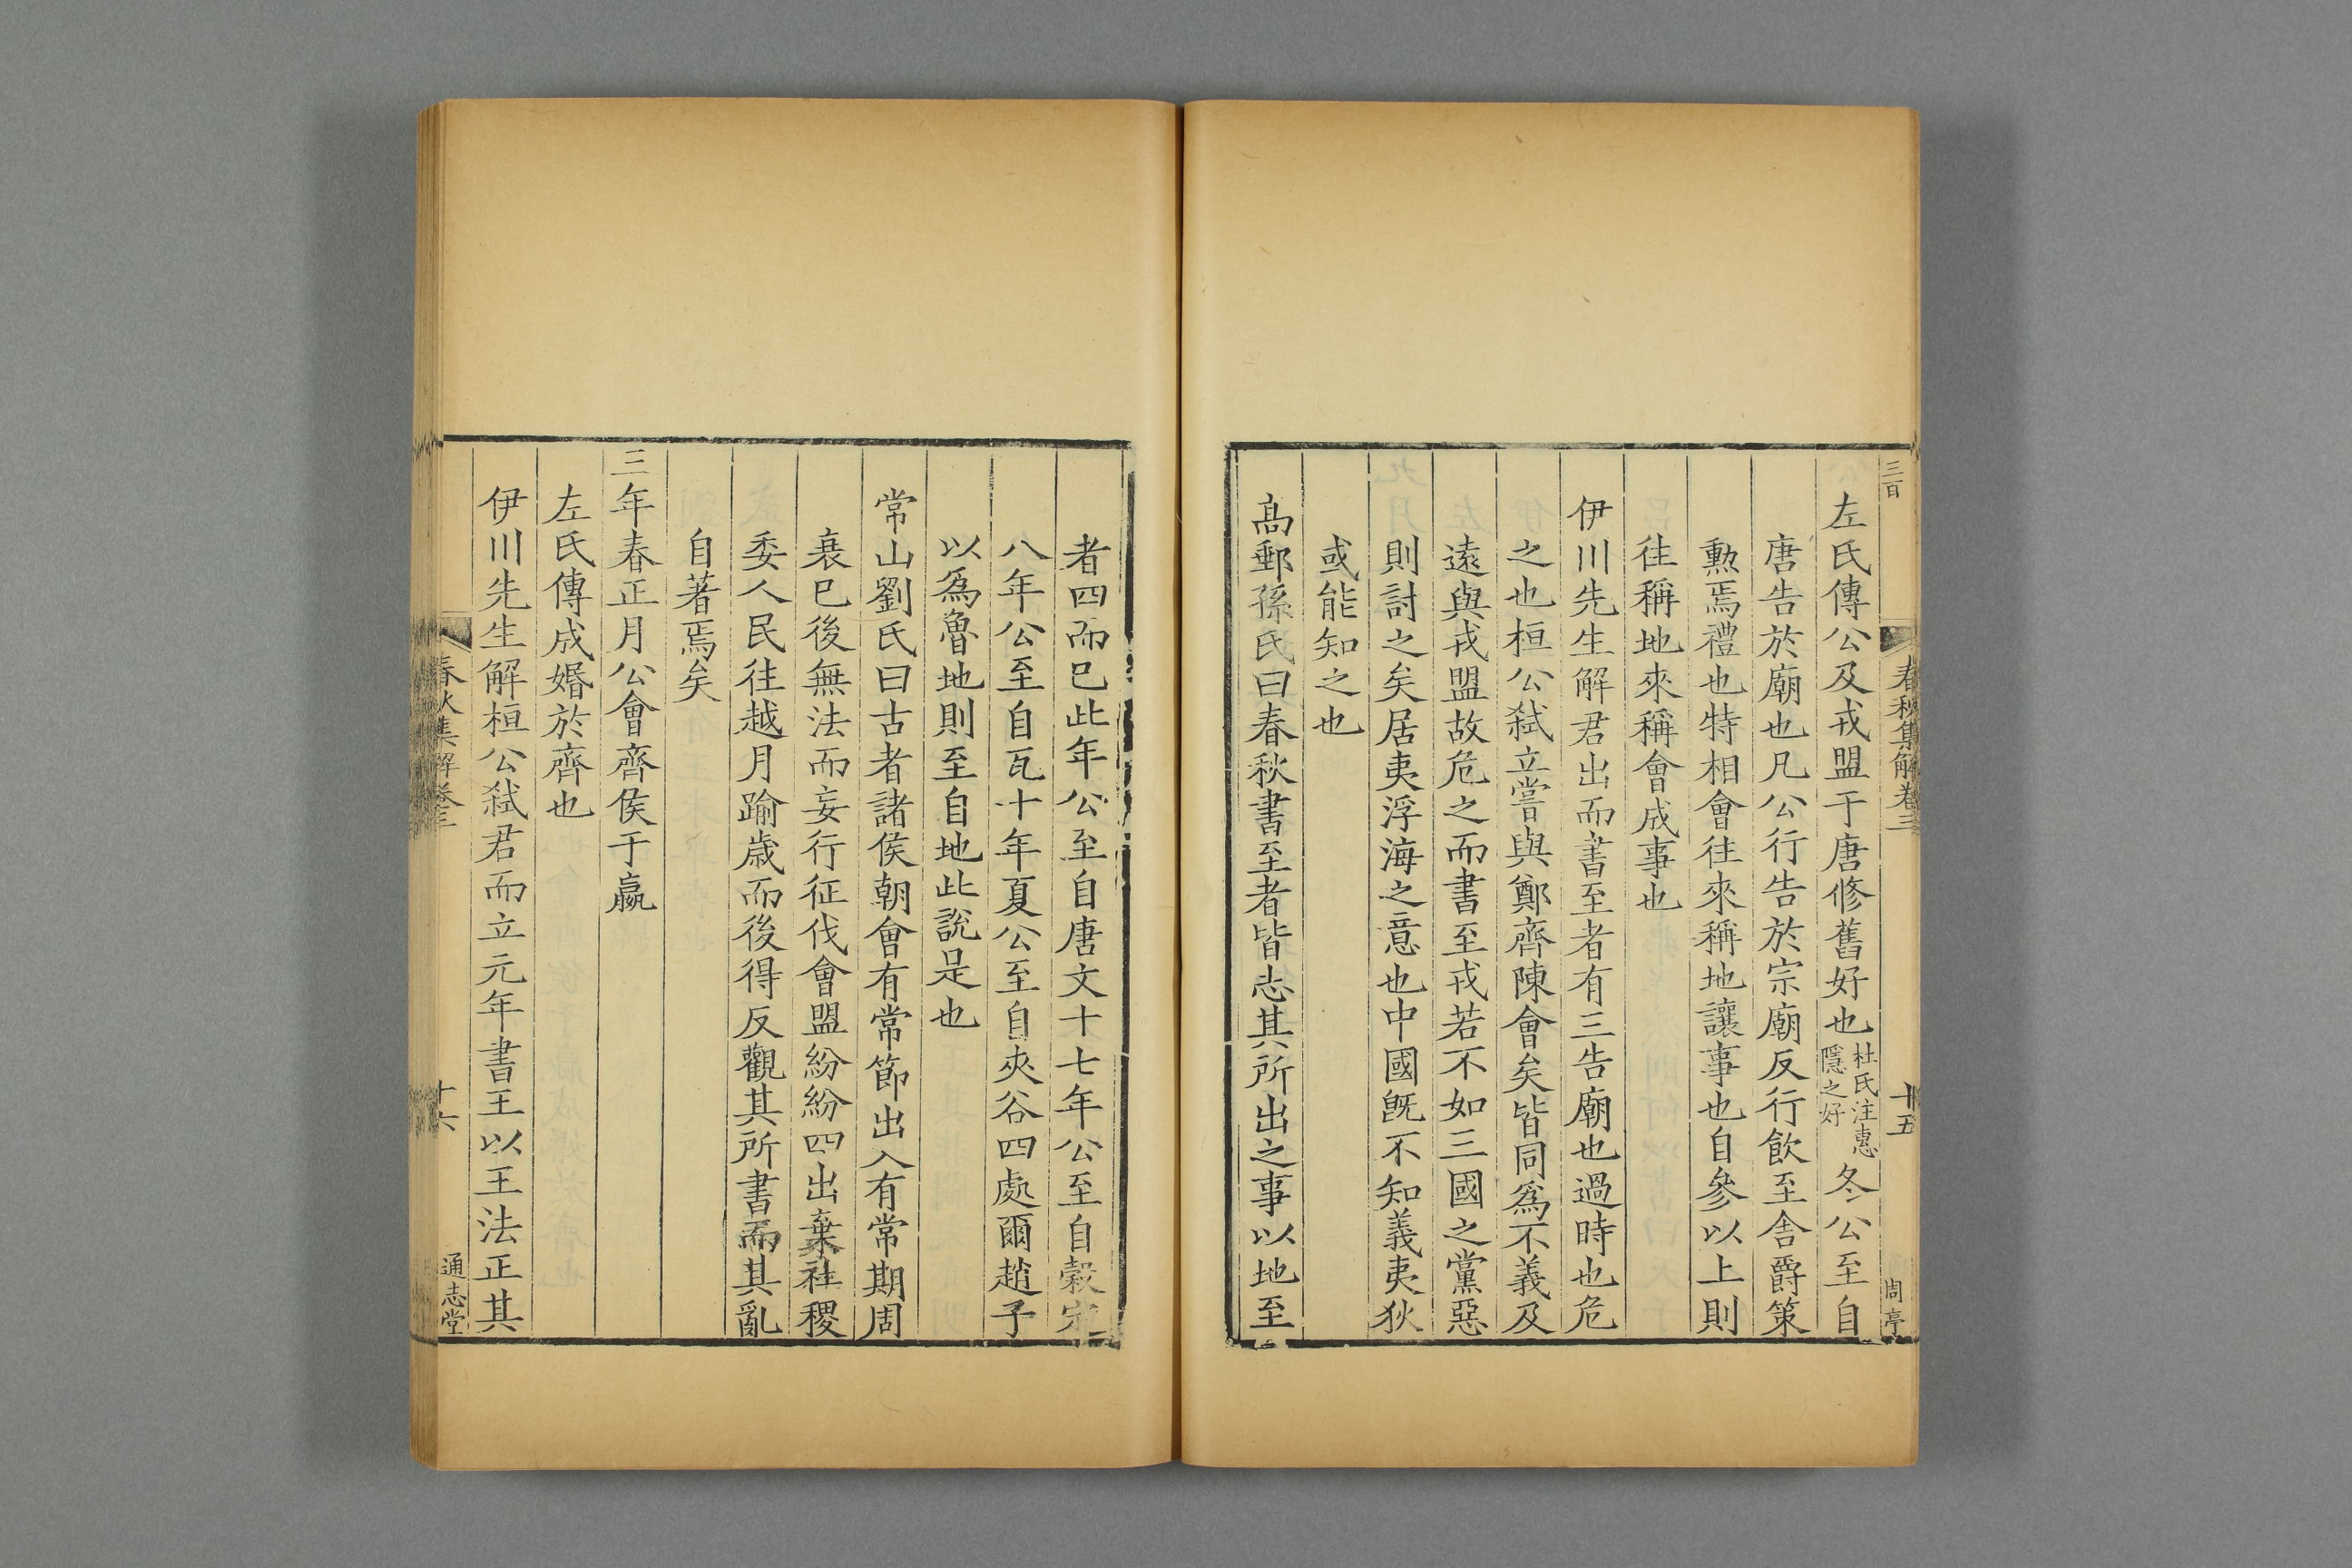 三百
春秋集解卷三
十五
周亭
左氏傳公及戎盟于唐修舊好也杜氏注惠隱之好冬公至自
唐告於廟也凡公行告於宗廟反行飲至舍爵策
勲焉禮也特相會往來稱地讓事也自參以上則
往稱地來稱會成事也
伊川先生解君出而書至者有三告廟也過時也危
之也桓公弑立嘗與鄭齊陳會矣皆同爲不義及
遠與戎盟故危之而書至戎若不如三國之黨惡
則討之矣居夷浮海之意也中國旣不知義夷狄
或能知之也
高郵孫氏曰春秋書至者皆志其所出之事以地至
者四而已此年公至自唐文十七年公至自榖定
八年公至自瓦十年夏公至自夾谷四處爾趙子
以爲魯地則至自地此說是也
常山劉氏曰古者諸侯朝會有常節出入有常期周
衰已後無法而妄行征伐會盟紛紛四出棄社稷
委人民往越月踰歲而後得反觀其所書而其亂
自著焉矣
三年春正月公會齊侯于嬴
左氏傳成婚於齊也
伊川先生解桓公弑君而立元年書王以王法正其
春秋集解卷三
十六
通志堂